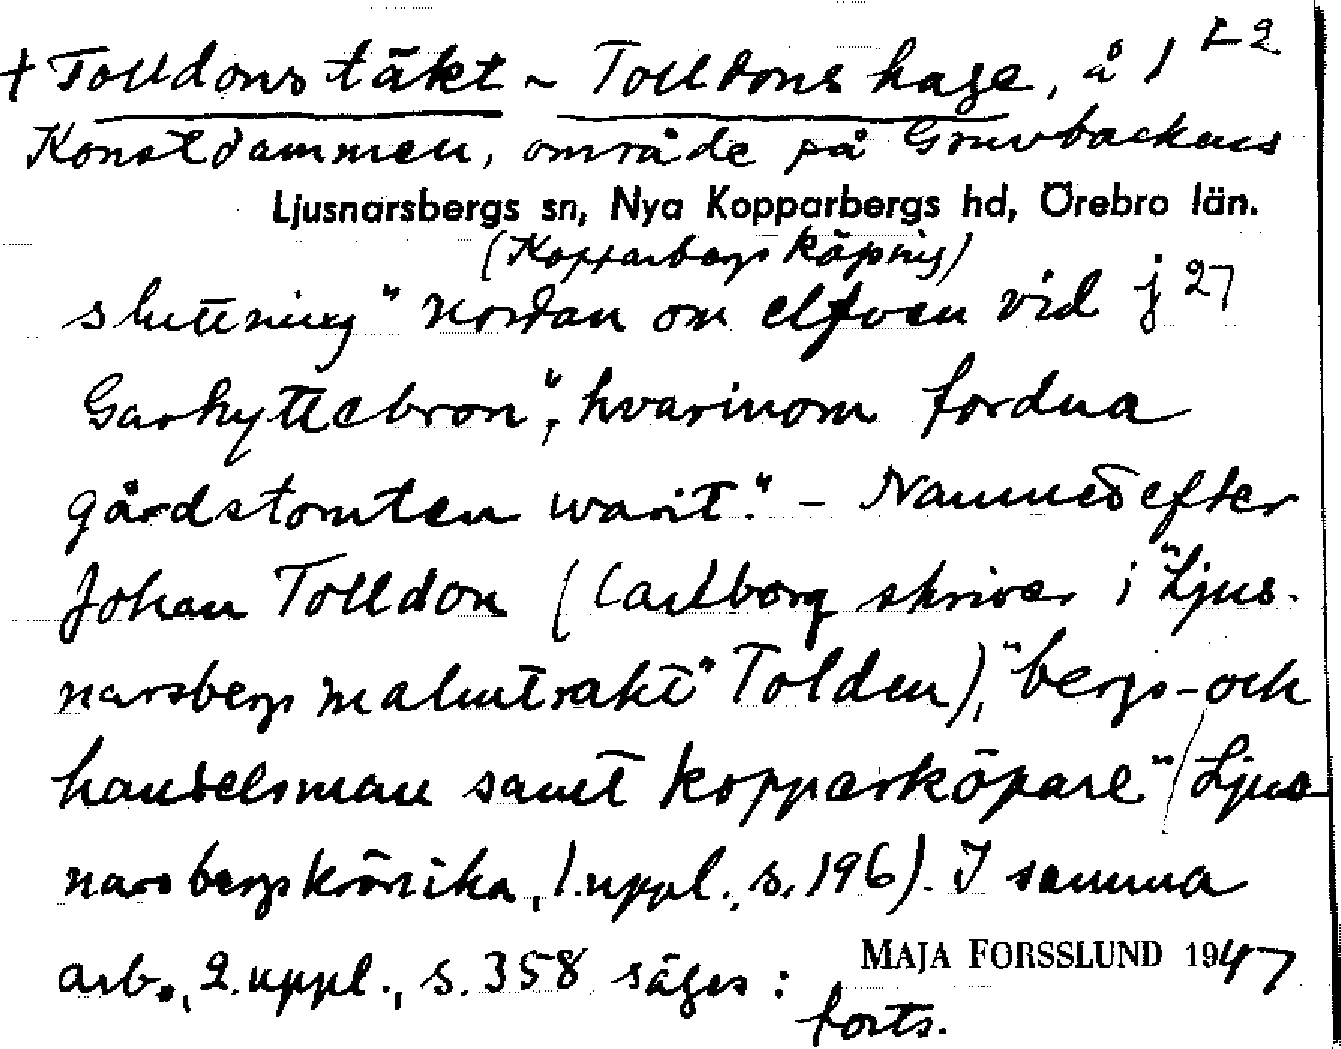 + Tolldons täkt ~ Tolldons hage, å 1 L2
Konstdammen, område på Gruvbackens
Ljusnarsbergs sn, Nya Kopparbergs hd, Örebro län.
(Kopparbergs köping)
sluttning "nordan om elfven vid j 27
Garhyttebron", "hvarinom fordna
gårdstomten warit." – Namned efter
Johan Tolldon (Carlborg skriver i "Ljus-
narsbergs malmtrakt" Tolden), "bergs- och
handelsman samt kopparköpare" (Ljus-
narsbergskrönika, 1. uppl., s. 196). I samma
arb., 2. uppl., s. 358 säges :
MAJA FORSSLUND 1947
forts.